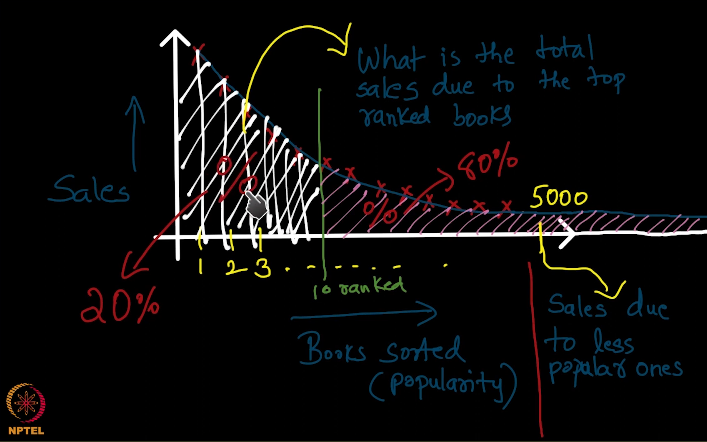 What is the total
sales due to the top
ranked books
Sales
%
80%
%
5000
1 2 3
20%
10 ranked
Books sorted
(popularity)
Sales due
to less
popular ones
NPTEL